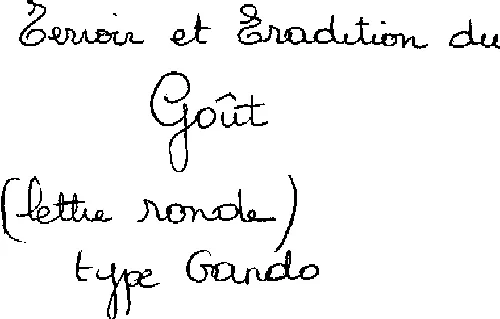 Terroir et Tradition du
Goût
(lettre ronde)
type Gando